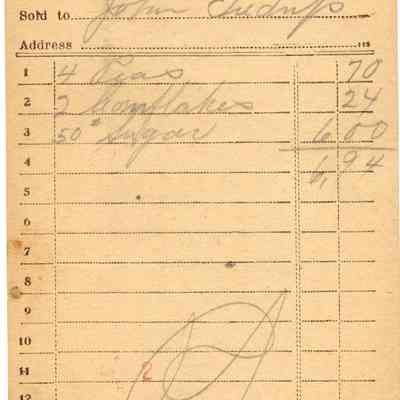 Sold to John
Address
1 4 Peas 70
2 2 Cornflakes 24
3 50# Sugar 6 00
4 6, 94
5
6
7
8
9
10
11 2
12